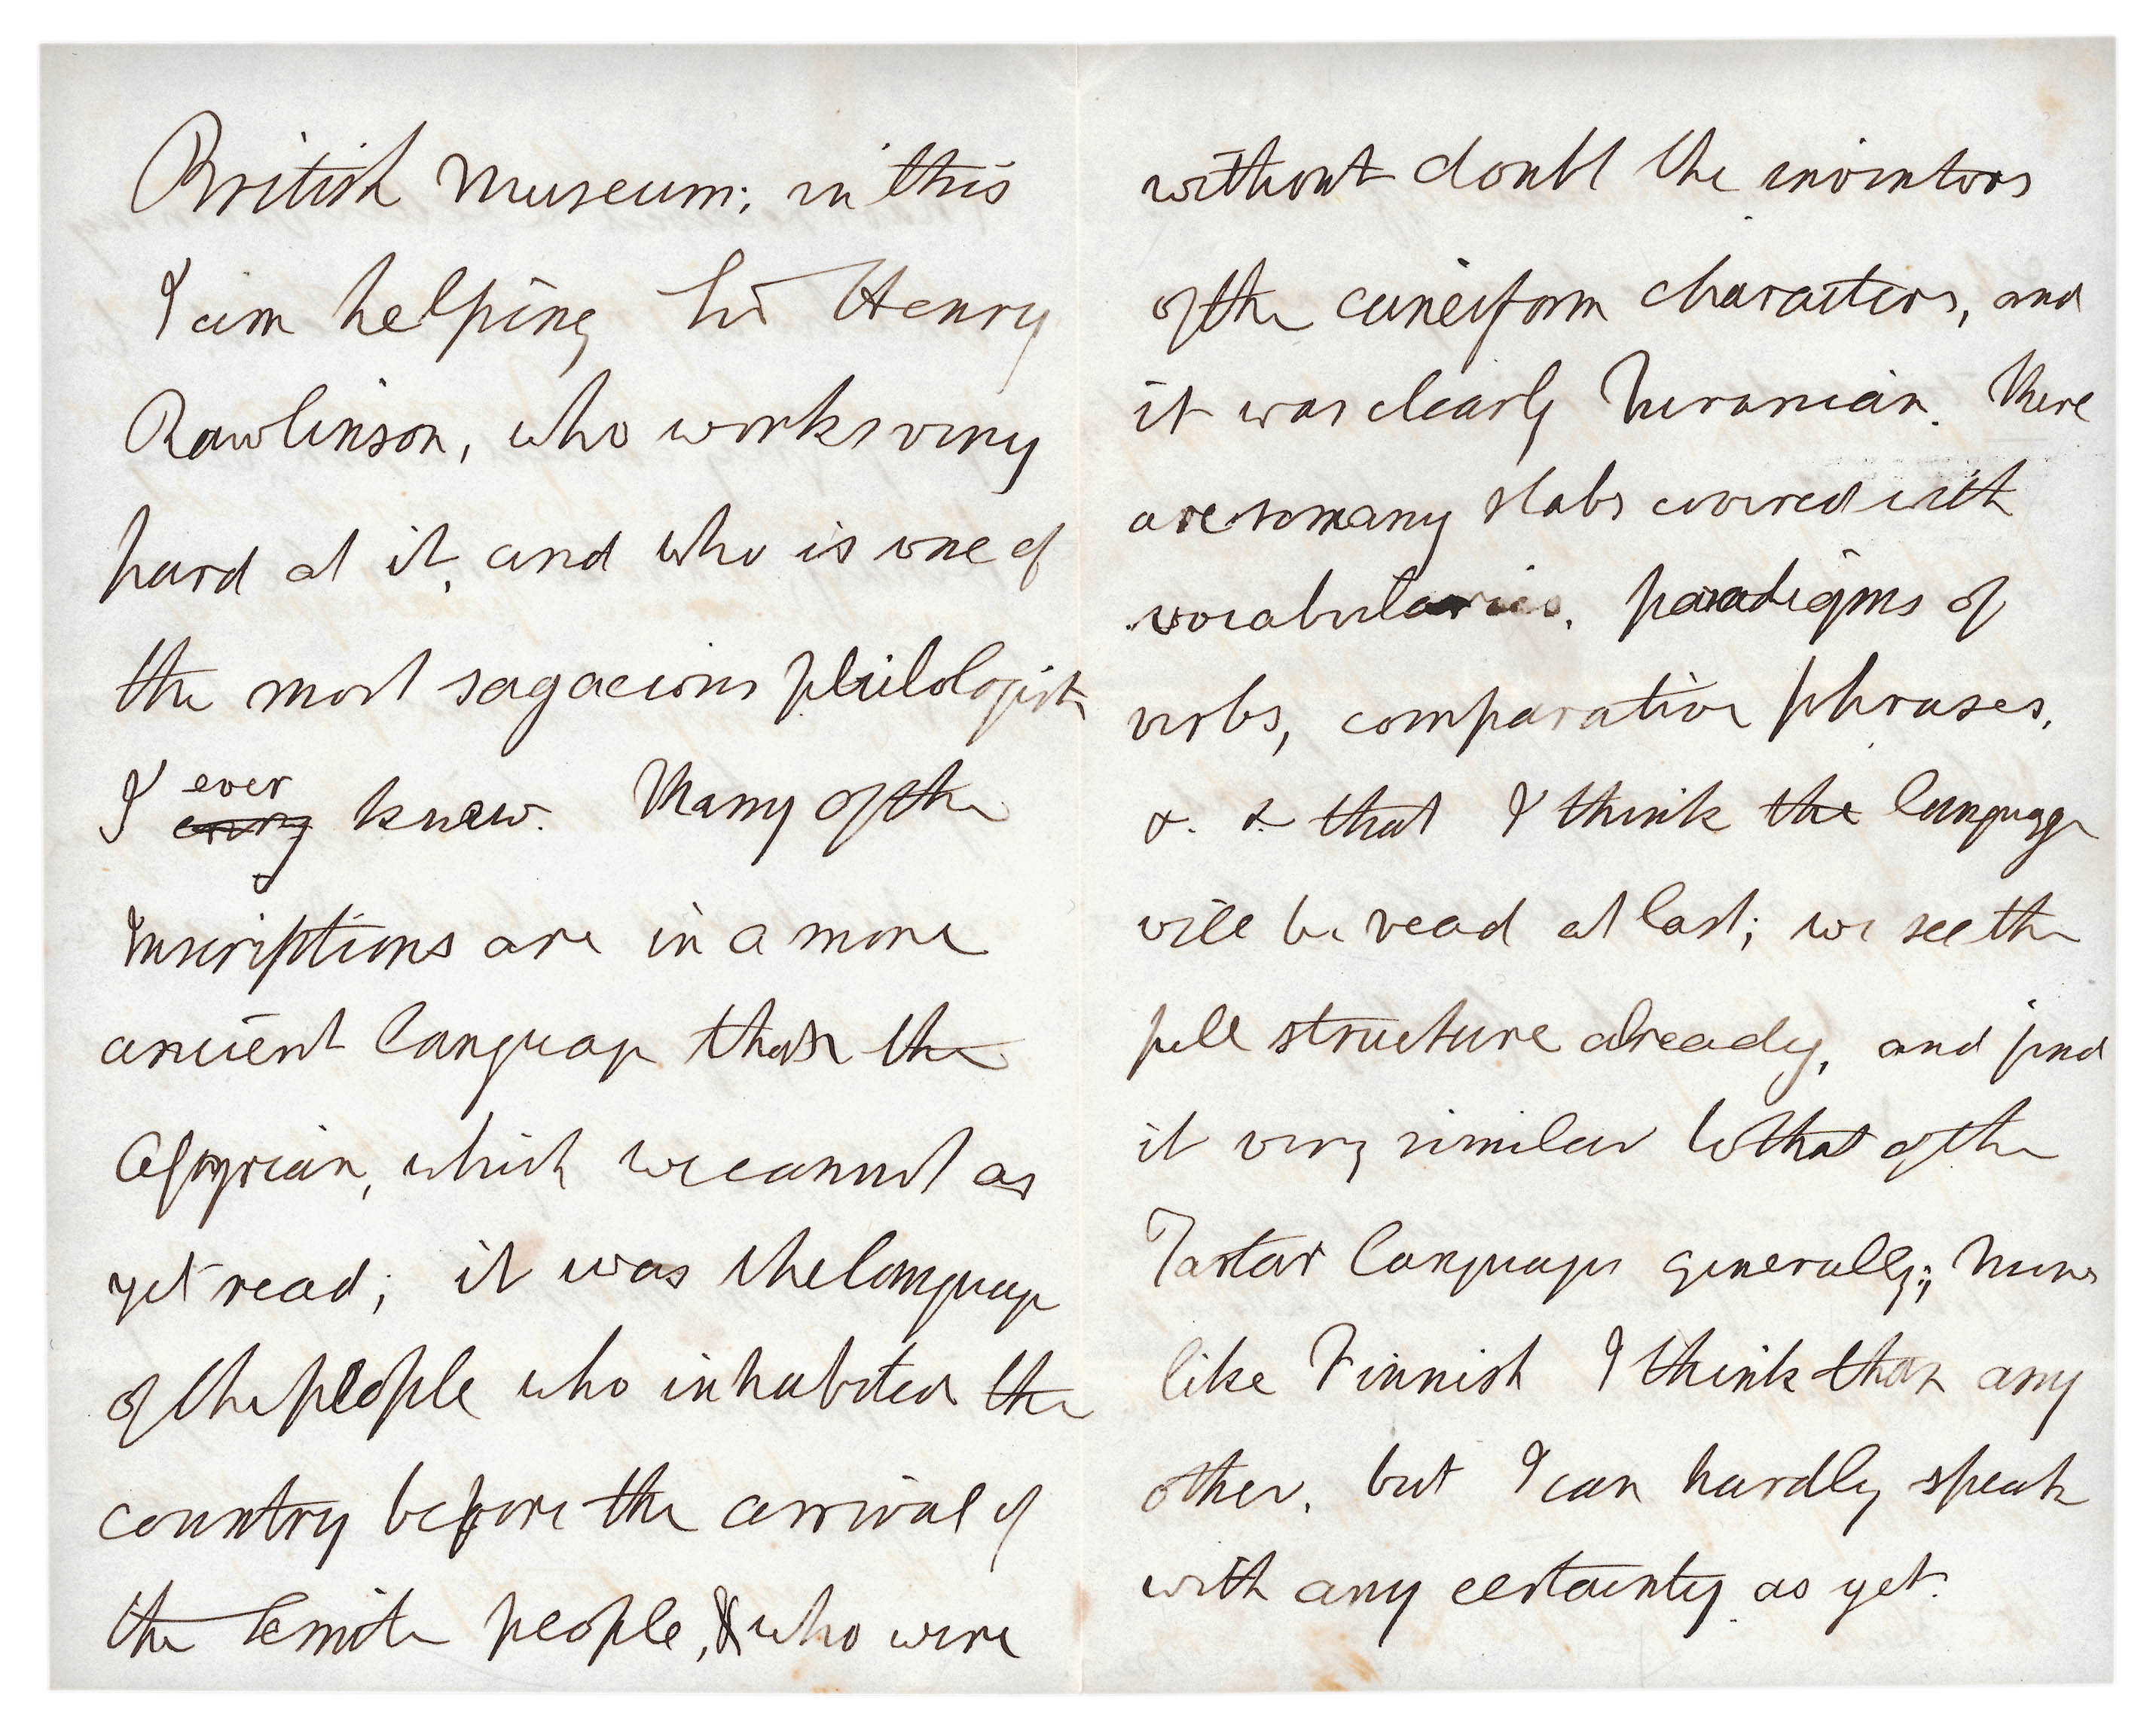 British Museum; in this
I am helping Sir Henry
Rawlinson, who works very
hard at it, and who is one of
the most sagacious philologists
I ever knew. Many of the
Inscriptions are in a more
ancient language than the
Assyrian, which we cannot as
yet read; it was the language
of the people who inhabited the
country before the arrival of
the Semite people, & who were
without doubt the inventors
of the cuneiform characters, and
it was clearly Turanian. There
are so many slabs covered with
vocabularies, paradigms of
verbs, comparative phrases,
&. &. that I think the language
will be read at last; we see the
full structure already, and find
it very similar to that of the
Tartar languages generally; more
like Finnish I think than any
other, but I can hardly speak
with any certainty as yet.